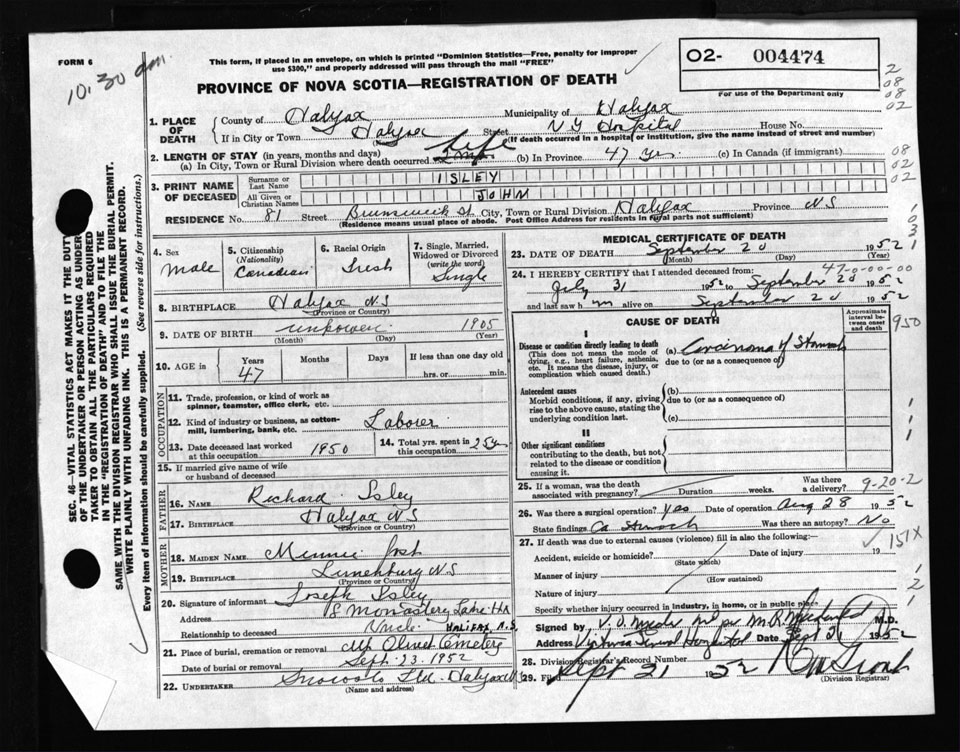 FORM 6
10.30 am.
This form, if placed in an envelope, on which is printed "Dominion Statistics—Free, penalty for improper
use $300," and properly addressed will pass through the mail "FREE"
PROVINCE OF NOVA SCOTIA—REGISTRATION OF DEATH
02- 004474
For use of the Department only
2
08
08
02
1. PLACE OF DEATH
County of Halifax Municipality of Halifax
If in City or Town Halifax Street Hospital House No.
(If death occurred in a hospital or institution, give the name instead of street and number)
2. LENGTH OF STAY (in years, months and days)
(a) In City, Town or Rural Division where death occurred Life (b) In Province 47 yrs. (c) In Canada (if immigrant)
08
02
02
3. PRINT NAME OF DECEASED
Surname or Last Name ISLEY
All Given or Christian Names JOHN
RESIDENCE No. 81 Street Brunswick St City, Town or Rural Division Halifax Province NS
(Residence means usual place of abode. Post Office Address for residents in rural parts not sufficient)
4. Sex
male
5. Citizenship (Nationality)
Canadian
6. Racial Origin
Irish
7. Single, Married, Widowed or Divorced (write the word)
Single
8. BIRTHPLACE Halifax NS
(Province or Country)
9. DATE OF BIRTH unknown 1905
(Month) (Day) (Year)
10. AGE in
Years 47 Months Days If less than one day old
hrs. or min.
OCCUPATION
11. Trade, profession, or kind of work as
spinner, teamster, office clerk, etc.
12. Kind of industry or business, as cotton-
mill, lumbering, bank, etc. Laborer
13. Date deceased last worked at this occupation 1950
14. Total yrs. spent in this occupation 25 y
15. If married give name of wife
or husband of deceased
FATHER
16. NAME Richard Isley
17. BIRTHPLACE Halifax NS
(Province or Country)
MOTHER
18. MAIDEN NAME Minnie
19. BIRTHPLACE Lunenburg NS
(Province or Country)
20. Signature of informant Joseph Isley
Address 8 Monastery Lane Hx
HALIFAX, N.S.
Relationship to deceased Uncle
21. Place of burial, cremation or removal Mt Olivet Cemetery
Date of burial or removal Sept. 23. 1952
22. UNDERTAKER Snow & Co Ltd. Halifax NS
(Name and Address)
MEDICAL CERTIFICATE OF DEATH
23. DATE OF DEATH September 20 1952
(Month) (Day)
47-0-00-00
24. I HEREBY CERTIFY that I attended deceased from:
July 31 1952 to September 20 1952
and last saw him alive on September 20 1952
CAUSE OF DEATH
Approximate interval between onset and death
950
I
Disease or condition directly leading to death
(This does not mean the mode of
dying, e.g., heart failure, asthenia,
etc. It means the disease, injury, or
complication which caused death.)
(a) Carcinoma of Stomach
due to (or as a consequence of)
Antecedent causes
Morbid conditions, if any, giving
rise to the above cause, stating the
underlying condition last.
(b)
due to (or as a consequence of)
(c)
II
Other significant conditions
contributing to the death, but not
related to the disease or condition
causing it.
25. If a woman, was the death
associated with pregnancy? Duration weeks. Was there a delivery?
9-20-2
26. Was there a surgical operation? Yes Date of operation Aug 28 1952
State findings Ca Stomach Was there an autopsy? No
27. If death was due to external causes (violence) fill in also the following:
151X
Accident, suicide or homicide? Date of injury 19
(State which)
Manner of injury
(How sustained)
Nature of injury
Specify whether injury occurred in industry, in home, or in public place
Signed by M.D.
Address Victoria General Hospital Date Sept 21 1952
28. Division Registrar's Record Number
29. Filed Sept 21 1952
(Division Registrar)
SEC. 46—VITAL STATISTICS ACT MAKES IT THE DUTY
OF THE UNDERTAKER OR PERSON ACTING AS UNDER
TAKER TO OBTAIN ALL THE PARTICULARS REQUIRED
IN THE "REGISTRATION OF DEATH" AND TO FILE THE
SAME WITH THE DIVISION REGISTRAR WHO SHALL ISSUE THE BURIAL PERMIT.
WRITE PLAINLY WITH UNFADING INK. THIS IS A PERMANENT RECORD.
Every item of information should be carefully supplied. (See reverse side for instructions.)